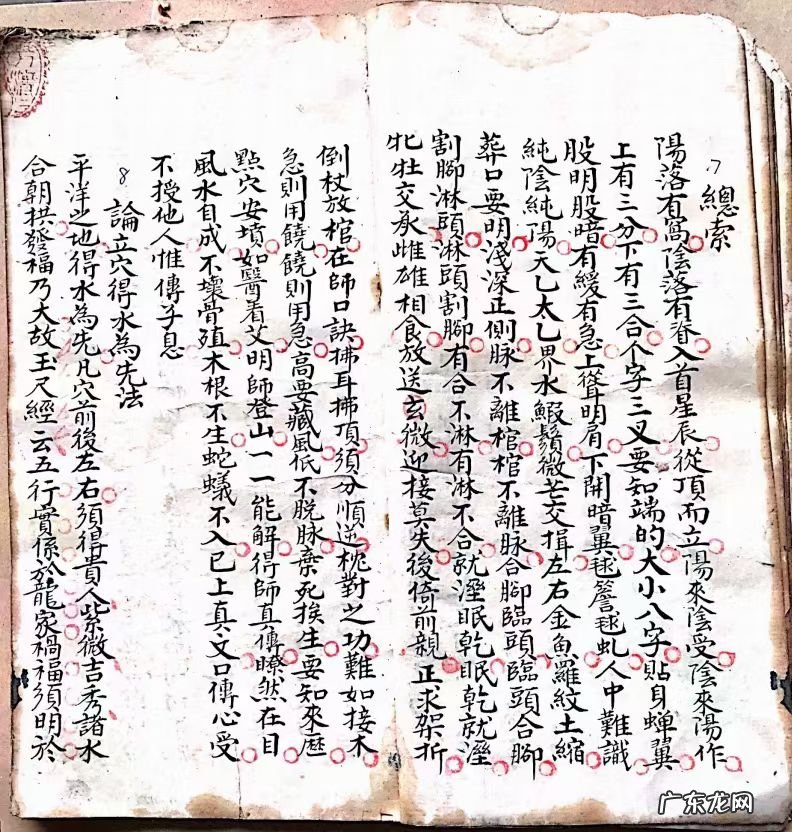 7 總索
陽落有窩陰落有脊入首星辰從頂而立陽來陰受陰來陽作
上有三分下有三合个字三叉要知端的大小八字貼身蟬翼
股明股暗有緩有急上聳明肩下開暗翼毬簷毬虬人中難識
純陰純陽天乙太乙界水鰕鬚微芒交揖左右金魚羅紋土縮
葬口要明淺深正側脉不離棺棺不離脉合腳臨頭臨頭合腳
割腳淋頭淋頭割腳有合不淋有淋不合就溼眠乾眠乾就溼
牝牡交承雌雄相食放送玄微迎接莫失後倚前親正求架折
倒杖放棺在師口訣拂耳拂頂須分順逆枕對之功難如接木
急則用饒饒則用急高要藏風低不脱脉棄死挨生要知來歴
點穴安墳如醫看艾明師登山一一能解得師真傳瞭然在目
風水自成不壞骨殖木根不生蛇蟻不入已上真文口傳心受
不授他人惟傳子息
8 論立穴得水為先法
平洋之地得水為先凡穴前後左右須得貴人紫微吉秀諸水
合朝拱發福乃大故玉尺經云五行實係於龍家禍福須明於
广东龙网